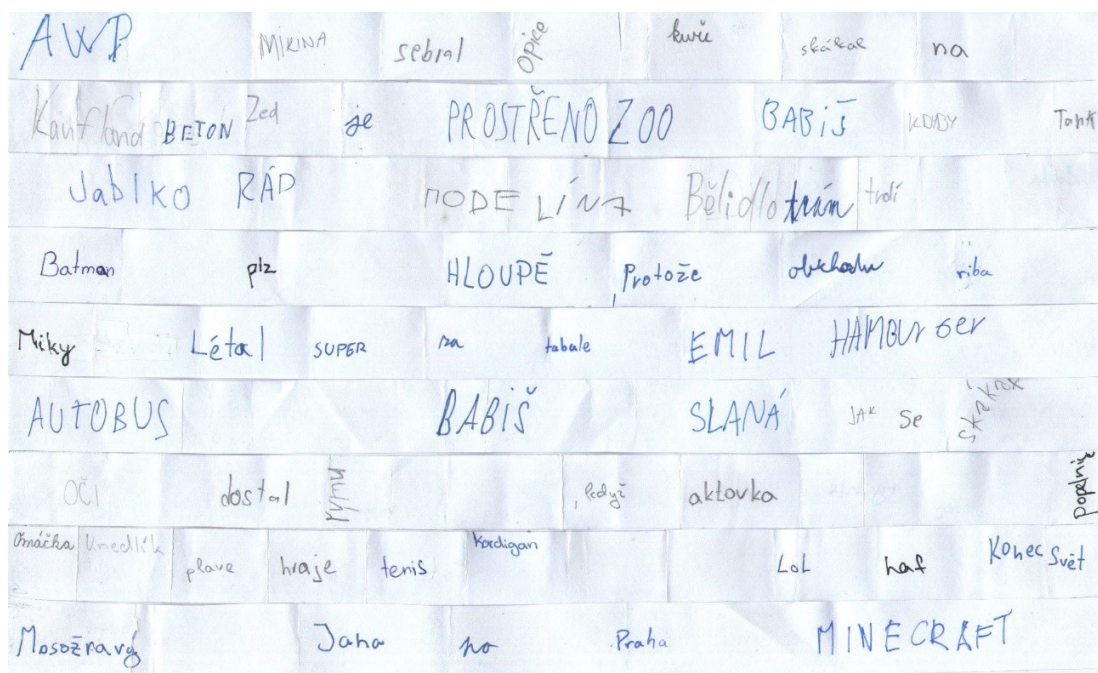 AWP MIKINA sebral Opice kuře skákal na
Kaufland BETON Zed je PROSTŘENO ZOO BABiŠ KDYBY Tank
Jablko RÁP MODELÍNA Bělidlo trám tvrdí
Batman plz HLOUPĚ , Protože obchodu riba
Miky Létal SUPER na tabule EMIL HAMBURGER
AUTOBUS BABiŠ SLANÁ JAK se
OČI dostal , když aktovka Popelnič
Omáčka knedlík plave hraje tenis Kardigan LoL haf Konec Svět
Masožravý Jana po Praha MINECRAFT